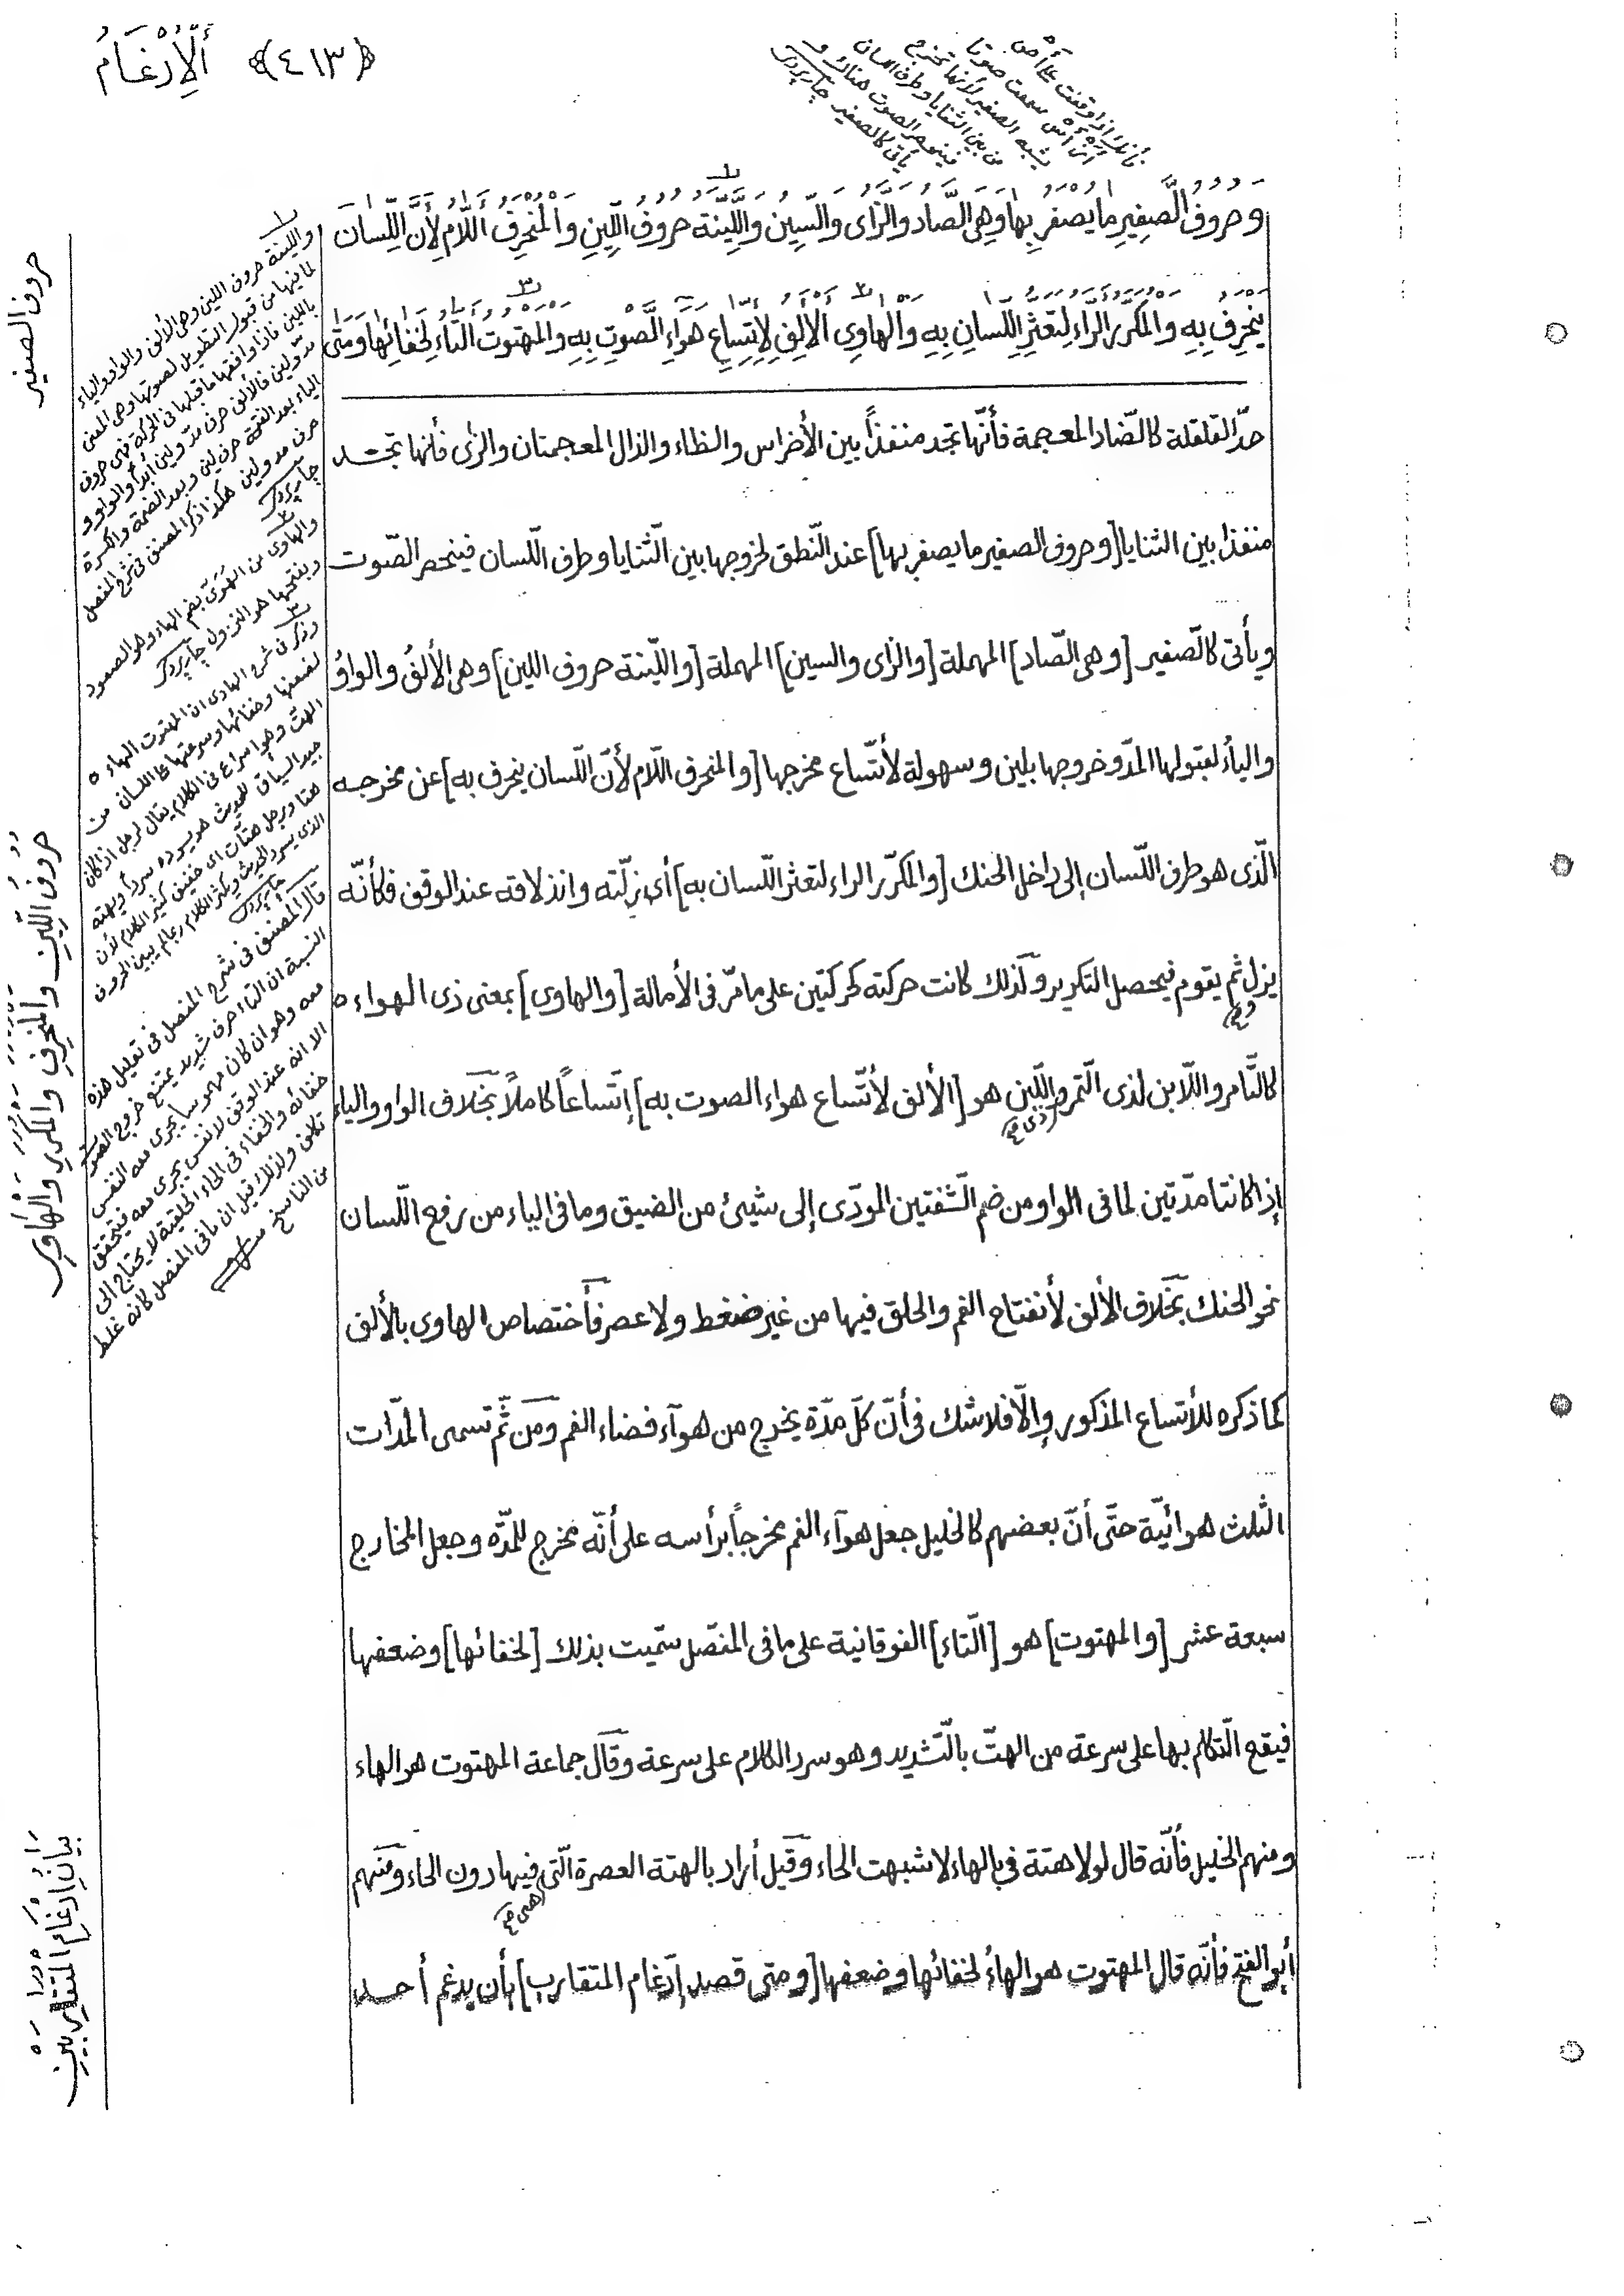 أَلْإِدْغَامُ ﴿٤١٣﴾
فأنك اذا وقفت على أص
از أس سمعت صوتا
يشبه الصفير لأنها تخرج
من بين الثنايا وطرف اللسان
فينحصر الصوت هناك و
يأتى كالصفير جاربردى
وَحروفُ الصَّفِيرِ مَا يُصْفَرُ بِهَا وَهِىَ الصَّادُ وَالزَّاىُ وَالسِّينُ وَاللَّيِّنَةُ حُروُفُ اللِّينِ وَالْمُنْحَرِفُ اللَّامُ لِأَنَّ اللِّسانَ
يَنْحَرِفُ بِهِ وَالْمُكَرَّرُ الرَّاءُ لِتَعَثُّرِ اللِّسانِ بِهِ وَالْهاوِى الْأَلِفُ لِأِتِّساعِ هَوَاءِ الصَّوْتِ بِهِ وَالْمَهْتوُتُ التَّاءُ لِخَفَائِهَا وَمَتٰى
حدّ القلقلة كالضّاد المعجمة فأنّها تجد منفذاً بين الأضراس والظاء والذال المعجمتان والزّى فأنها تجــد
منفذا بين الثنايا [وحروف الصفير ما يصفر بها] عند النّطق لخروجها بين الثّنايا وطرف اللّسان فينحصر الصّوت
ويأتى كالصّفير [وهى الصّاد] المهملة [والزّاى والسين] المهملة [واللّيّنة حروف اللين] وهى الألفُ والواوُ
والياءُ لقبولها المدّ وخروجها بلين وسهولة لأتّساع مخرجها [والمنحرف اللّام لأنّ اللّسان ينحرف به] عن مخرجه
الّذى هو طرف اللّسان إلى داخل الحنك [والمكرّر الراء لتعثر اللّسان به] أى زلّته وانذلاقه عند الوقف فكأنّه
يزل ثم يقوم فيحصل التكرير ولذلك كانت حركته كحركتين على ما مرّ فى الأمالة [والهاوى] بمعنى ذى الهواء
كالتّامر واللّابن لذى التّمر واللّبن هو [الألف لأتّساع هواء الصوت به] إتّساعاً كاملاً بخلاف الواو والياء
إذا كانتا مدّتين لما فى الواو من ضم الشّفتين المودّى إلى شيئ من الضيق وما فى الياء من رفع اللّسان
نحو الحنك بخلاف الألف لأنفتاح الفم والحلق فيها من غير ضغط ولا عصر فأختصاص الهاوى بالألف
كما ذكره للأتساع المذكور وإلّا فلا شك فى أنّ كلّ مدّة يخرج من هوآء فضاء الفم ومن ثَّم تسمى المدّات
الثّلث هوائيّة حتّى أنّ بعضهم كالخليل جعل هوآء الفم مخرجاً برأسه على أنّه مخرج للمدّه وجعل المخارج
سبعة عشر [والمهتوت] هو [التّاء] الفوقانية على ما فى المفصّل سمّيت بذلك [لخفائها] وضعفها
فيقع التّكلم بها على سرعة من الهتّ بالتّشديد وهو سرد الكلام على سرعة وقال جماعة المهتوت هو الهاء
ومنهم الخليل فأنّه قال لولا هتة فى الهاء لاشبهت الحاء وقيل أراد بالهتة العصرة الّتى فيها دون الحاء ومنهم
أبو الفتح فأنّه قال المهتوت هو الهاءُ لخفائها وضعفها [ومتى قصد إدّغام المتقارب] بأن يدغم أحــد
واللينة حروف اللين وهى الألف والواو والياء
لما فيها من قبول التطويل لصوتها وهى المعنى
باللين فأذا وافقها ما قبلها فى الحركة فهى حروف
مدّ ولين فالألف حرف مدّ ولين أبدًا والواو و
الياء بعد الفتحة حرف لين وبعد الضمة والكسرة
حرف مد ولين هكذا ذكر المصنف فى شرح المفصل
جاربردى
والهاوى من الهُوىّ بضم الهاء وهو الصعود
وبفتحها هو النزول جاربردى
وذكر فى شرح الهادى ان المهتوت الهاء
لضعفها وخفائها وسرعتها على اللسان من
الهتّ وهو اسراع فى الكلام يقال لرجل اذا كان
جيد السياق للحديث هو يسرده سرداً ويهته
هتا ورجل هتّات اى خفيف كثير الكلام لأن
الذى يسرد الحديث ويكثر الكلام ربما لم يبين الحروف
جاربردى
قال المصنف فى شرح المفصل فى تعليل هذه
النسبة ان التاء حرف شديد يمتنع خروج الصوت
معه وهو ان كان مهموسا يجرى معه النفس
الا انه عند الوقف لا نفس يجرى معه فيتحقق
خفائه والخفاء فى الهاء الخلقية لا يحتاج الى
تكلف ولذلك قيل ان ما فى المفصل كانه غلط
من الناسخ
حروف الصفير
حروفُ اللّينِ والمنحرفِ والمكررِ والهاوِى
بيانُ إدغامِ المتقارِبَينِ